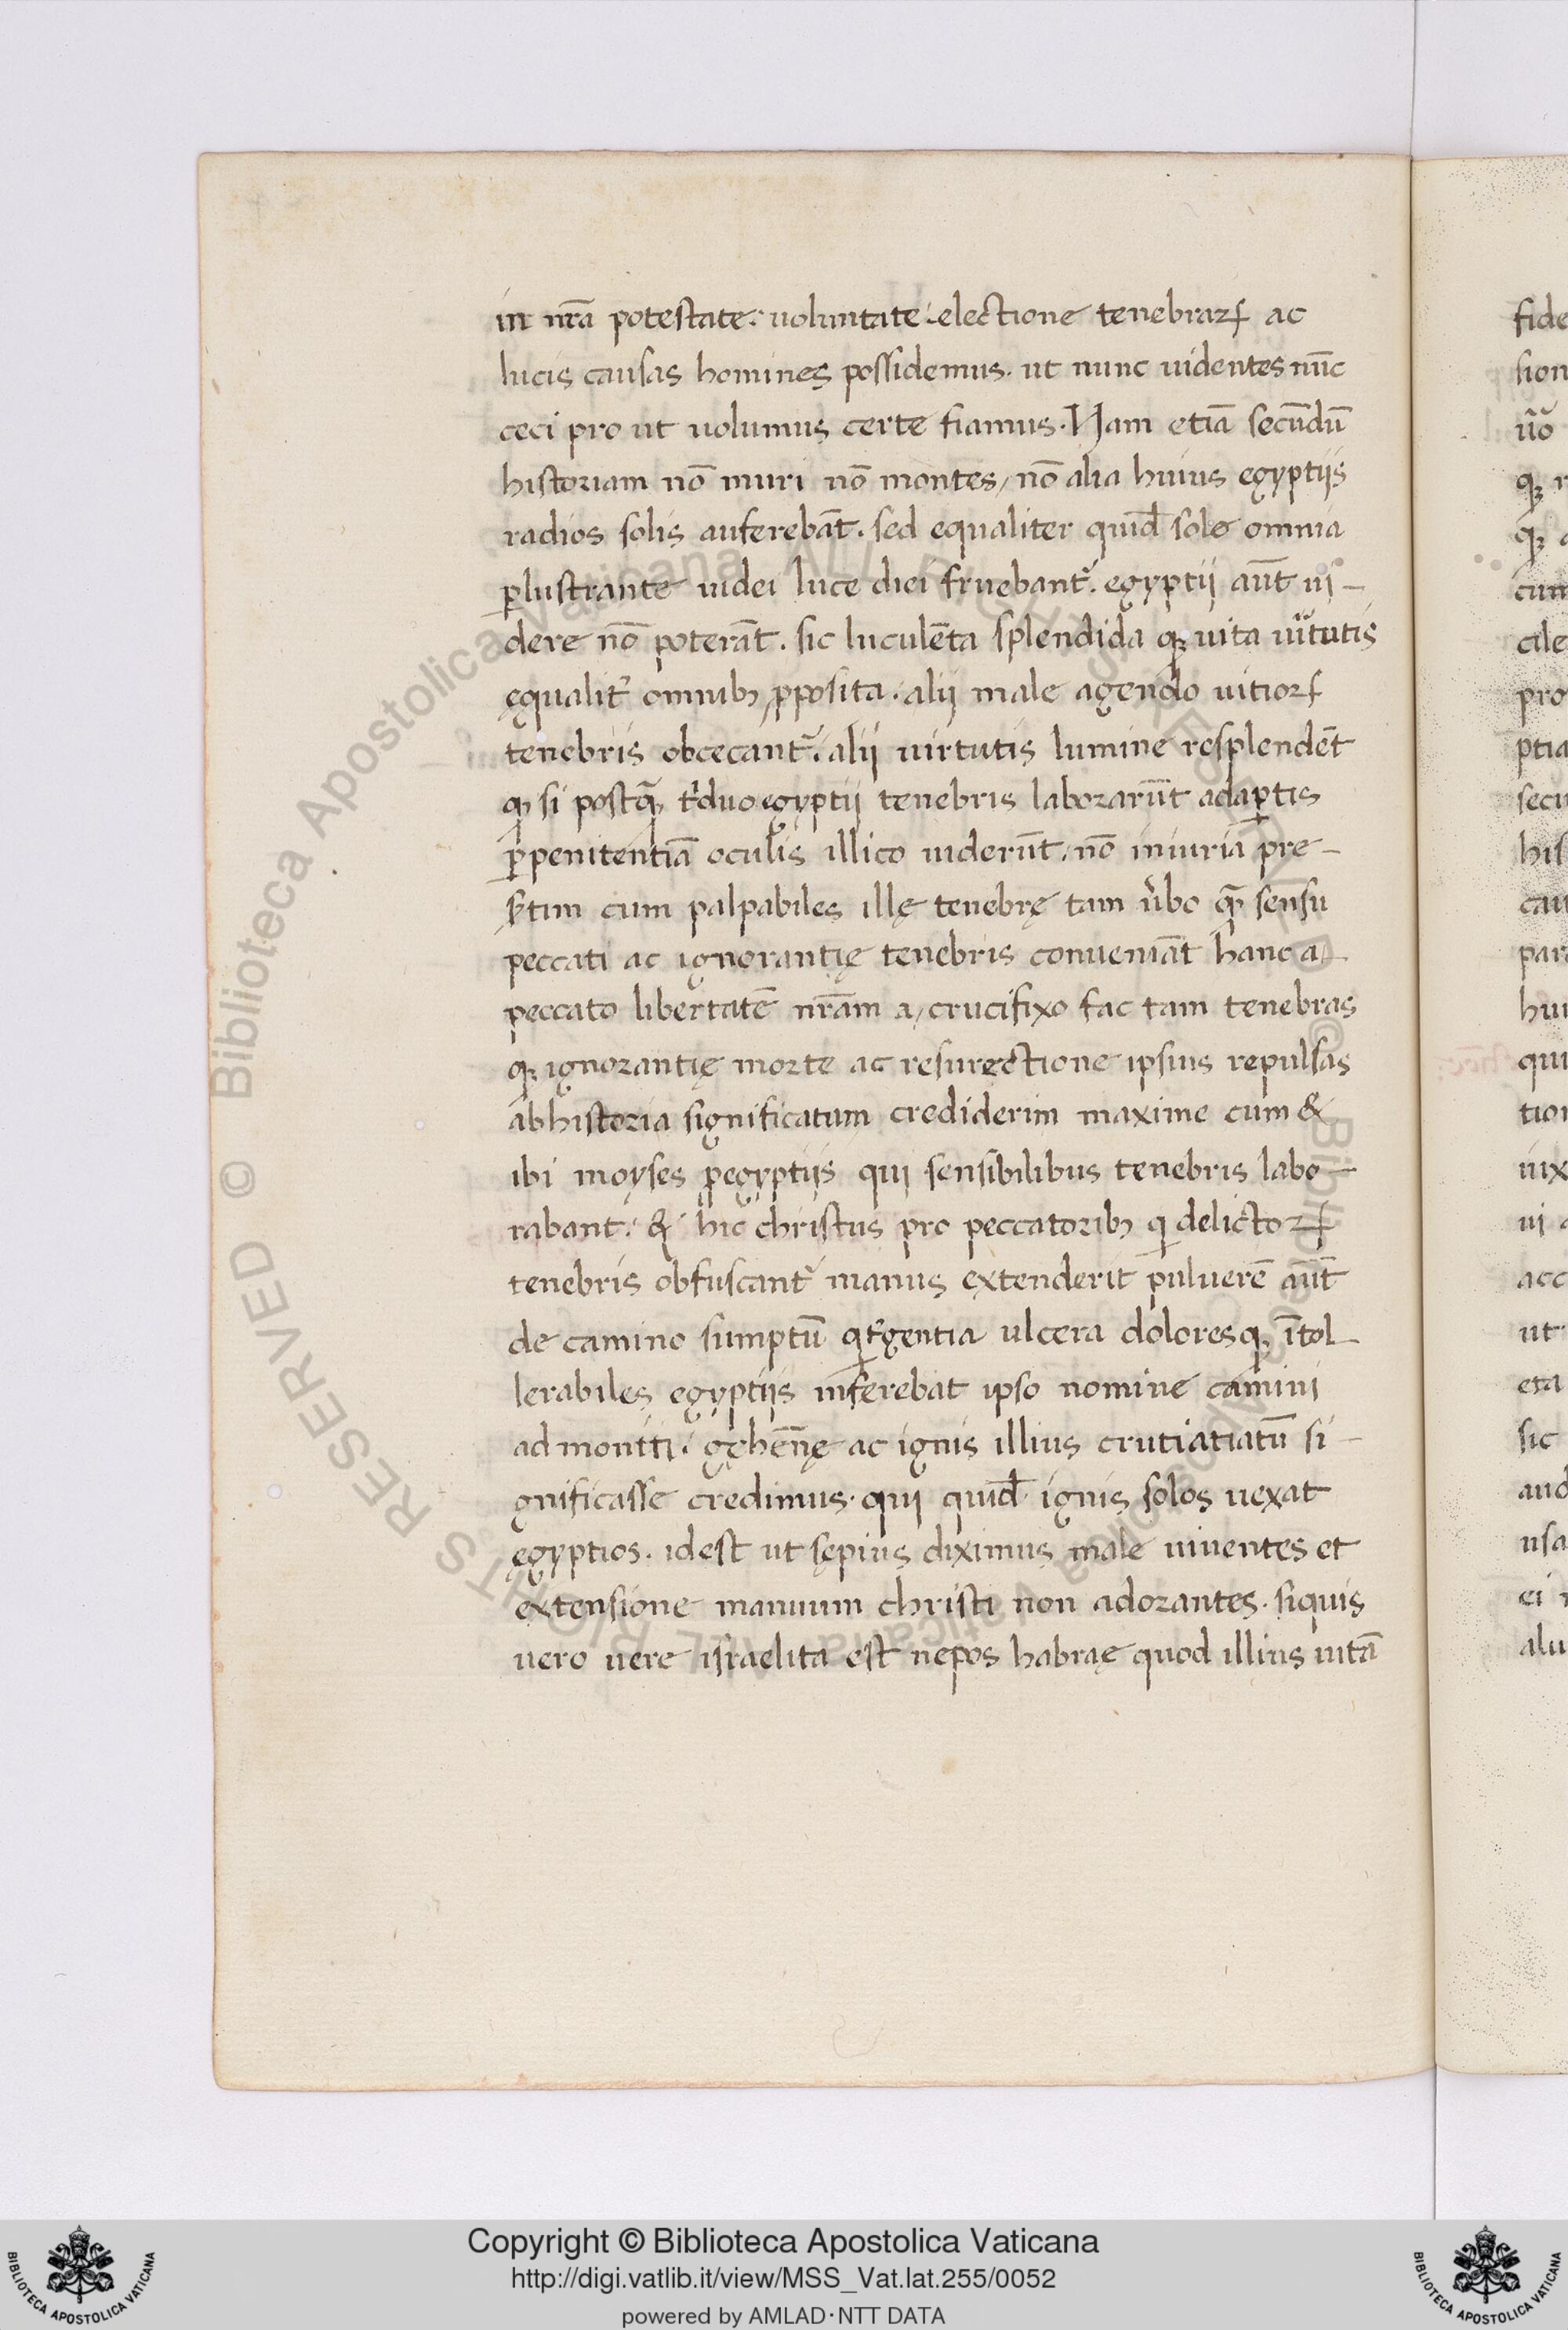 in nr̄a potestate: uoluntate. electione tenebraꝝ ac
lucis causas homines possidemus. ut nunc uidentes nūc
ceci pro ut uolumus certe fiamus. Nam etiā secūdū
historiam nō muri nō montes, nō alia huius egyptijs
radios solis auferebāt. sed equaliter quid̄ sole omnia
ꝑlustrante uidei luce diei fruebant᷑. egyptij aūt ui-
dere nō poterāt. sic luculēta splendida qꝫ uita uütutis
equalit᷑ omnibꝫ ꝓposita. alij male agendo uitioꝝ
tenebris obcecant᷑. alij uirtutis lumine resplendēt
qꝫ si postꝙ̄ t'duo egyptij tenebris laborarūt adaꝑtis
ꝑ penitentiā oculis illico uiderūt, nō iniuria pre-
s̄tim cum palpabiles illę tenebrę tam ủbo ꝙ̄ sensu
peccati ac ignorantię tenebris conueniāt hanc a
peccato libertatē nr̄am a, crucifixo fac tam tenebras
qꝫ ignorantię morte ac resurectione ipsius repulsas
ab historia significatum crediderim maxime cum &
ibi moyses ꝑ egyptijs qui sensibilibus tenebris labo-
rabant. & hic christus pro peccatoribꝫ q delictoꝝ
tenebris obfuscant᷑ manus extenderit puluerē aūt
de camino sumptū q t᷑gentia ulcera doloresqꝫ ītol-
lerabiles egyptijs inferebat ipso nomine camini
ad moniti. gehēnę ac ignis illius crutiatiatū si-
gnificasse credimus. qui quid̄ ignis solos uexat
ęgyptios. idest ut sępius diximus male uiuentes et
extensione manuum christi non adorantes. siquis
uero uere israelita est nepos habraę quod illius uitā
fide
sion
ũo
qꝫ
qꝫ
cum
cile
pro
ptia
secu
his
cau
par
hui
qui
tion
uix
ui
acc
ut
eta
sic
aud
usa
ei
alu
© Biblioteca Apostolica Vaticana ALL RIGHTS RESERVED © Biblioteca Apostolica Vaticana ALL RIGHTS RESERVED
BIBLIOTECA APOSTOLICA VATICANA
Copyright © Biblioteca Apostolica Vaticana
http://digi.vatlib.it/view/MSS_Vat.lat.255/0052
powered by AMLAD·NTT DATA
BIBLIOTECA APOSTOLICA VATICANA